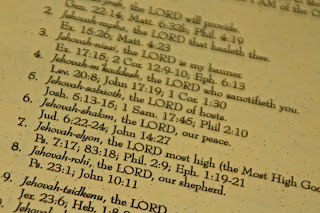 AM of the
Jehovah-jireh, the LORD will provide.
Gen. 22:14; Matt. 6:33b; Phil 4:19
2. Jehovah-rapha, the LORD that healeth thee.
Ex. 15:26; Matt. 4:23
3. Jehovah-nissi, the LORD is my banner.
Ex. 17:15; 2 Cor. 12:9-10; Eph. 6:13
4. Jehovah-m'kaddesh, the LORD who sanctifieth you.
Lev. 20:8; John 17:19; 1 Cor. 1:30
5. Jehovah-sabaoth, the LORD of hosts.
Josh. 5:13-15; 1 Sam. 17:45; Phil 2:10
6. Jehovah-shalom, the LORD, our peace.
Jud. 6:22-24; John 14:27
7. Jehovah-elyon, the LORD most high (the Most High God
Ps. 7:17; 83:18; Phil. 2:9; Eph. 1:19-21
8. Jehovah-rohi, the LORD, our shepherd.
Ps. 23:1; John 10:11
9. Jehovah-tsidkenu, the LORD
Jer. 23:6; Heb. 1:8
Jehovah